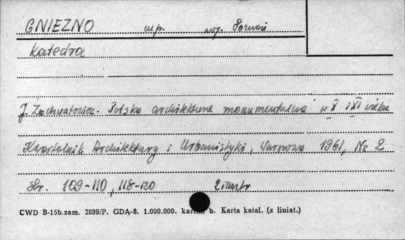 GNIEZNO mp. woj. Poznań
Katedra
J. Zachwatowicz. Polska architektura monumentalna w X i XI wieku
Kwartalnik Architektury i Urbanistyki, Warszawa 1961, Nr 2
Str. 109-110, 118-120
CWD B-15b.zam. 2899/P. GDA-8. 1.000.000. b. Karta katal. (z liniat.)